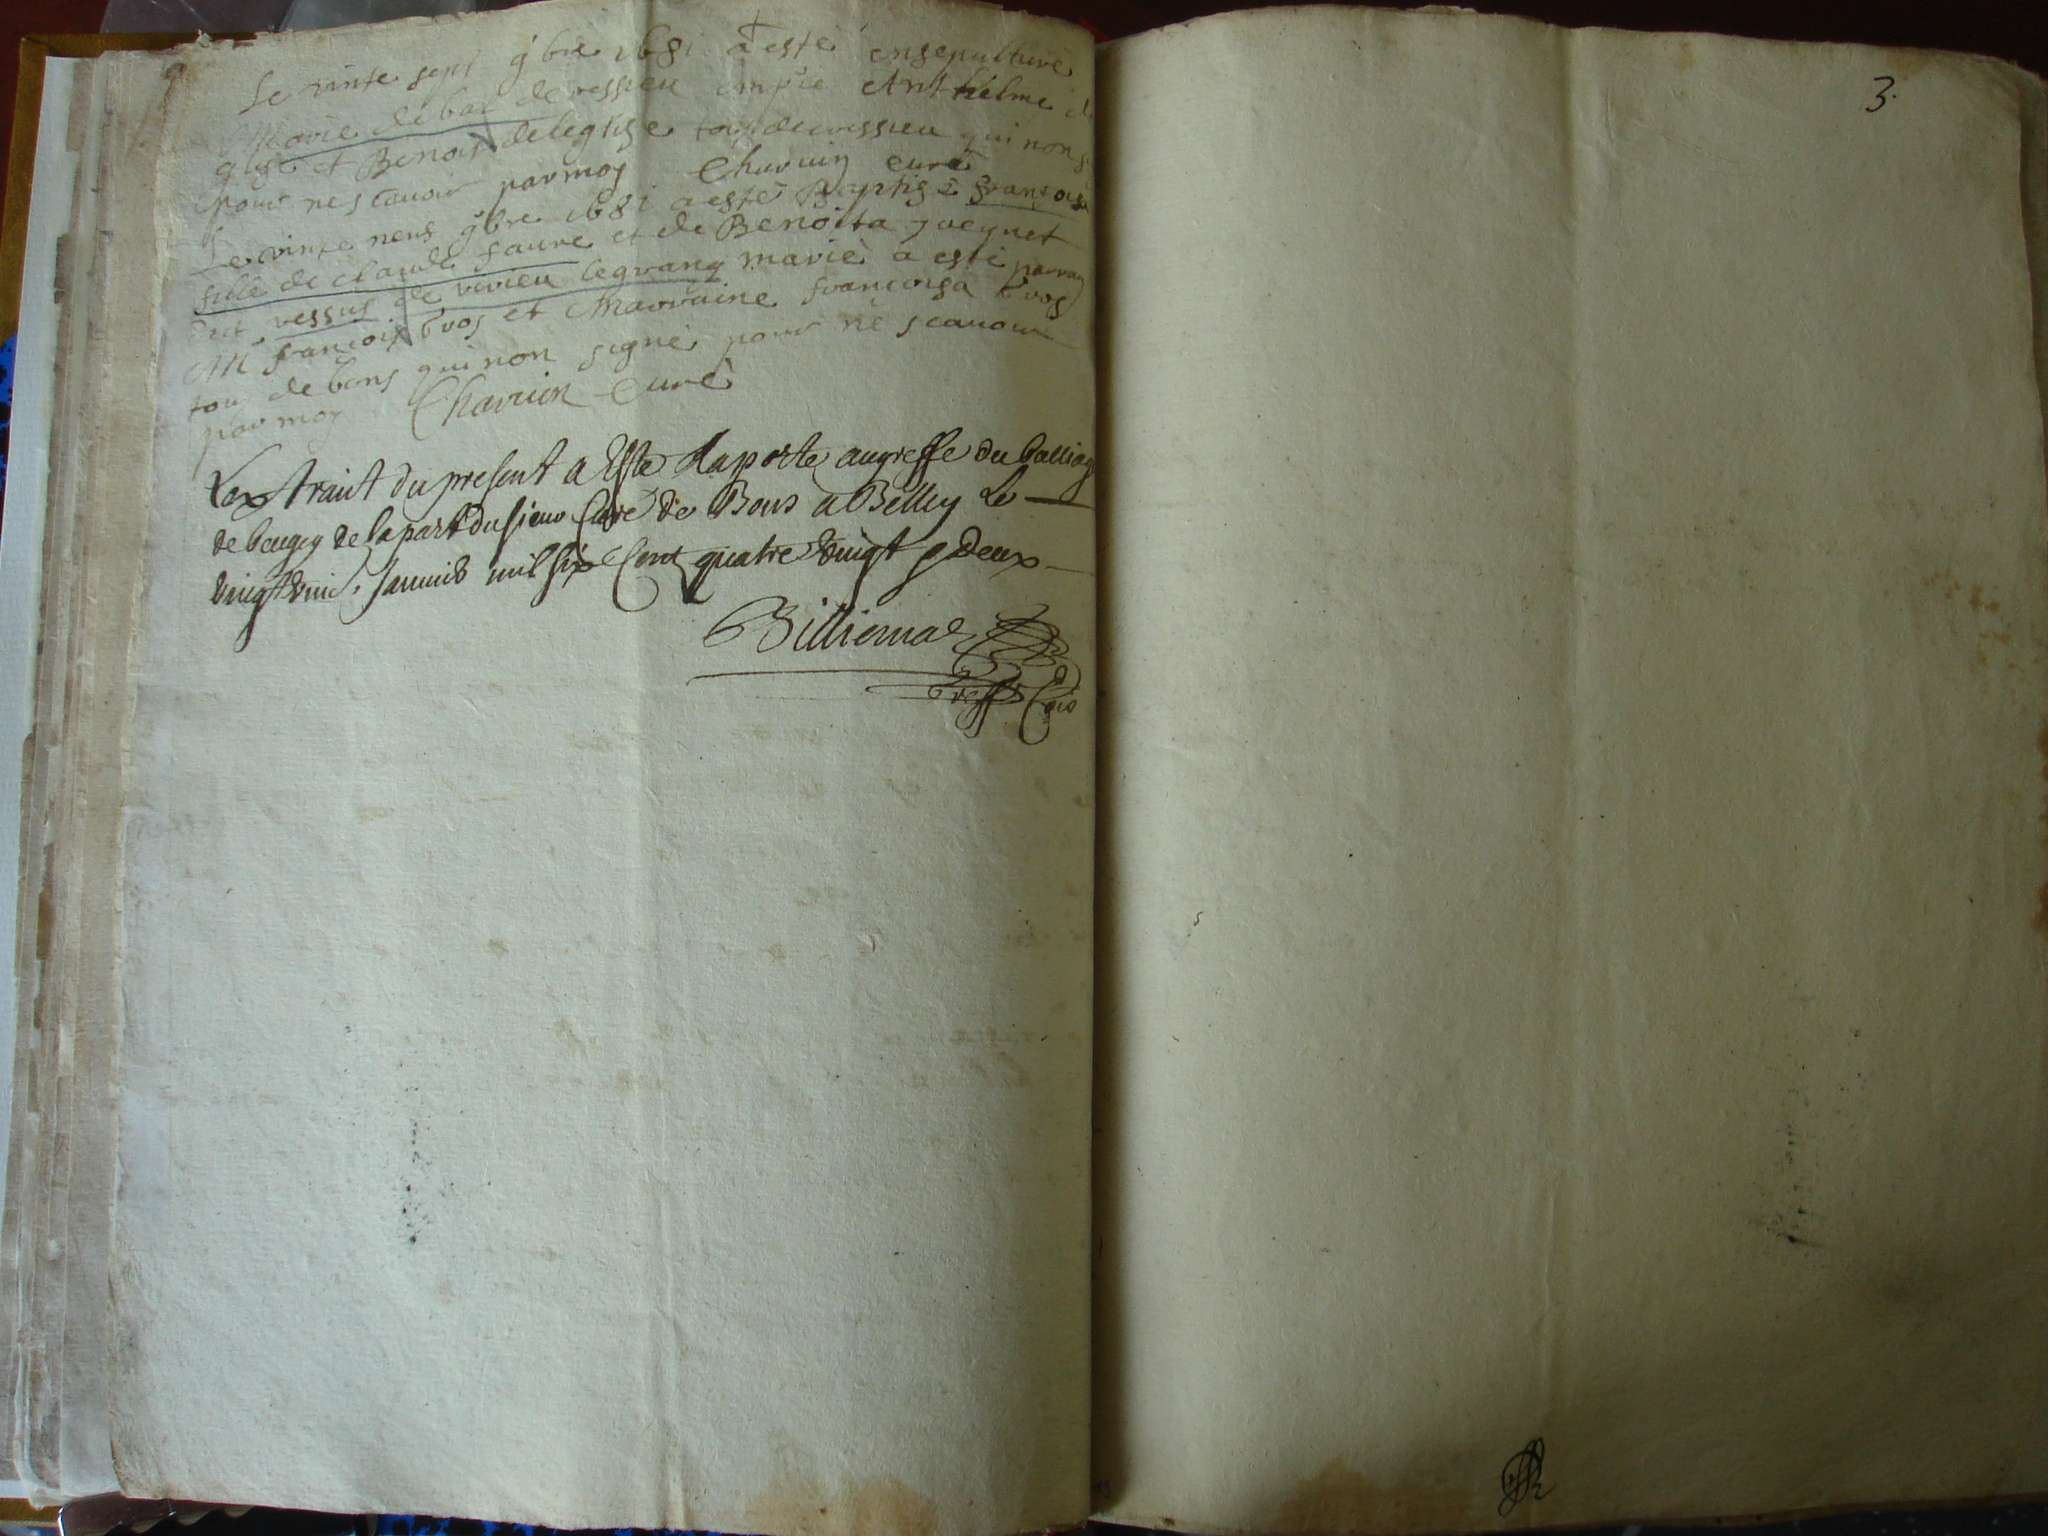 Le vinte sept 9bre 1681 a esté ensepulturé
Marie debat de vessieu empré Anthelme de
glise et Benoist deleglise tous de vissieu qui non
pour ne scavoir par moy Charvin curé
Le vinte neuf 9bre 1681 a esté Baptisé françoisa
fille de claude faure et de Benoita
dict vessus de virieu le grang marié a esté parrain
Mr françois bros et Marraine françoisa bros
tou de bons qui non signé pour ne scavoir
par moy Charvin Curé
Lextraict du present a Esté Raporté au greffe du balliage
de beugey de la part du sieur Curé de Bons a Belley Le
vingt unie Janvié mil six Cent quatre vingt e deux
Billiema
greff Com
3.